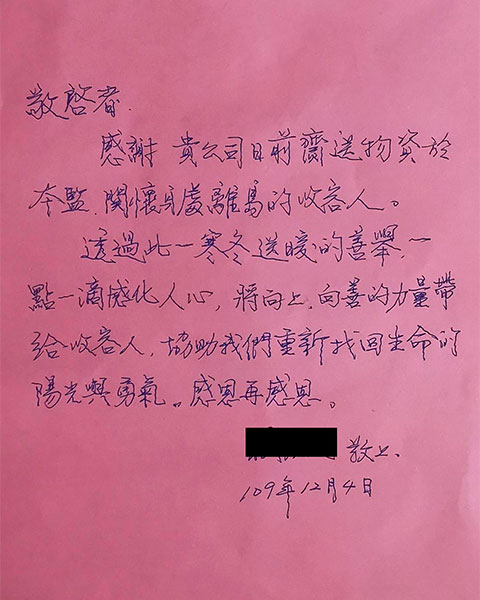 敬啓者.
感謝 貴公司日前齋送物資於
本監.関懷身處離島的收容人。
透過此一寒冬送暖的善舉,一
點一滴感化人心,將向上.向善的力量帶
給收容人,協助我們重新找回生命的
陽光與勇氣。感恩再感恩。
敬上.
109年12月4日